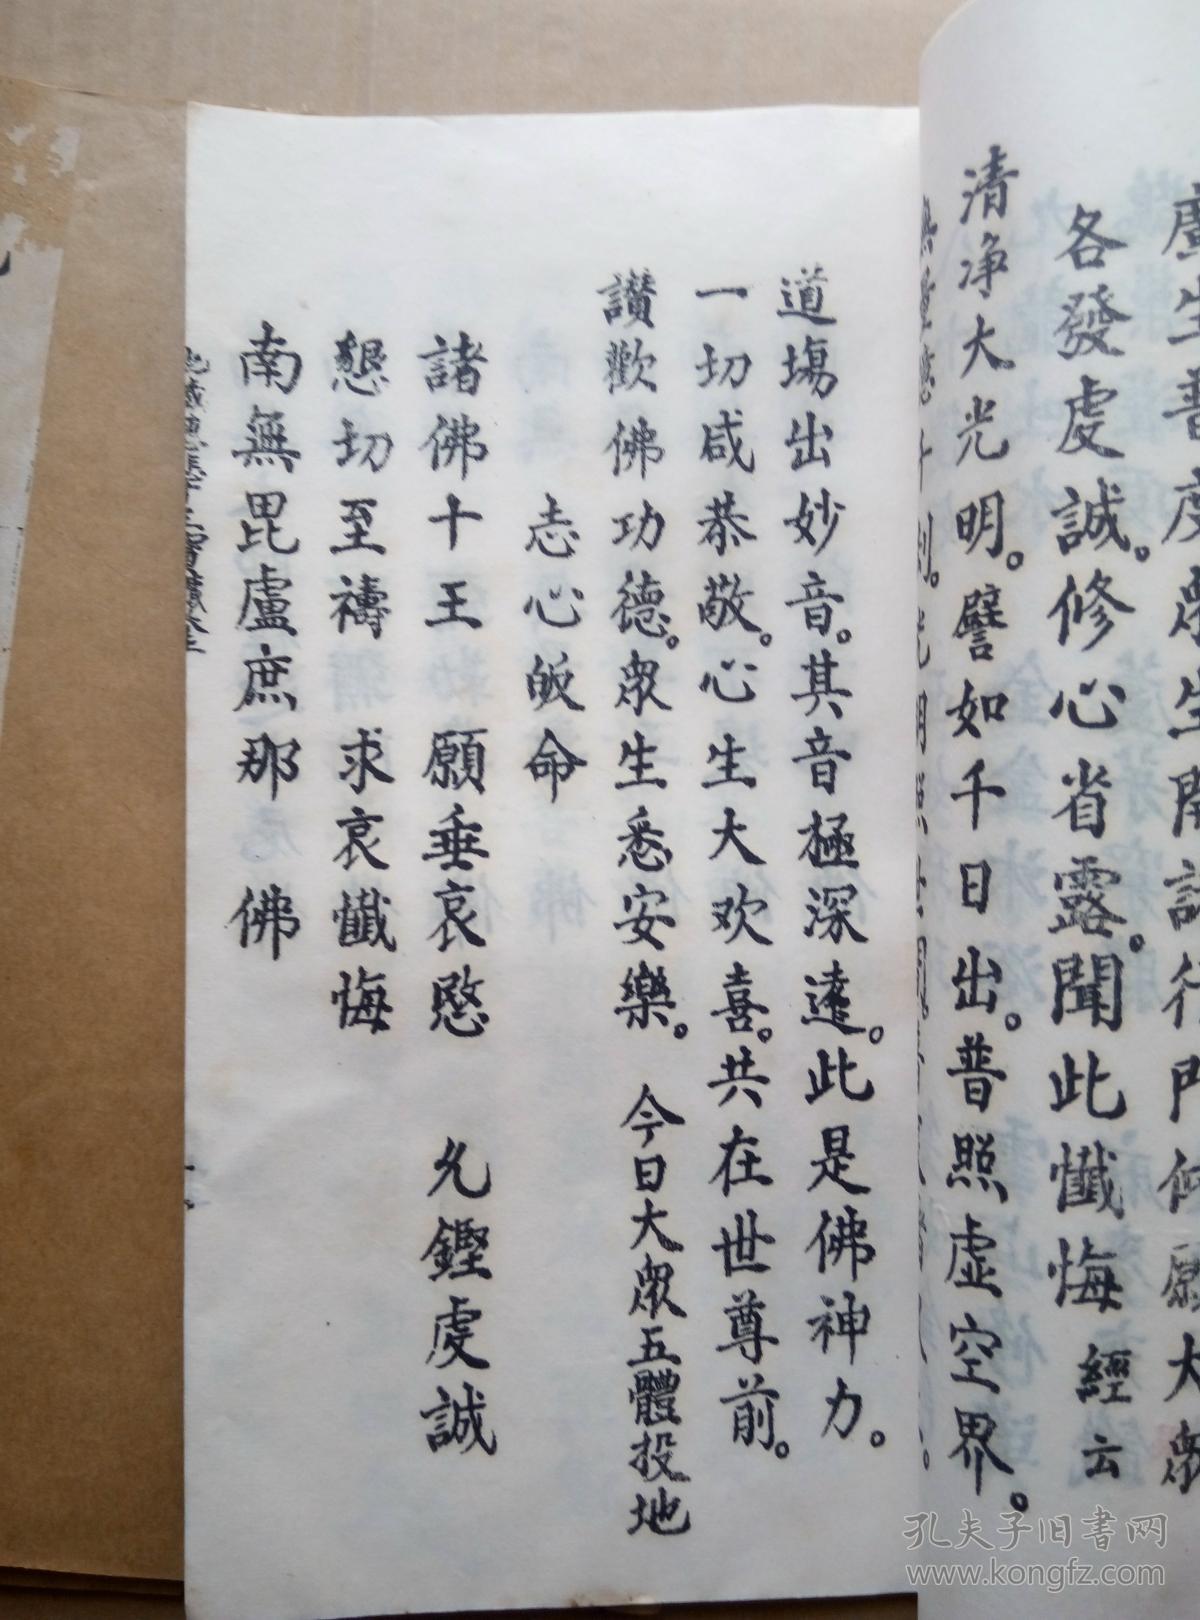 廣生普度眾生開
願大眾
各發虔誠。修心省露。聞此懺悔 經云
清净大光明。譬如千日出。普照虚空界。
道塲出妙音。其音極深遠。此是佛神力。
一切咸恭敬。心生大欢喜。共在世尊前。
讃歡佛功德。眾生悉安樂。 今日大眾五體投地
志心皈命
諸佛十王 願垂哀愍 允鏗虔誠
懇切至禱 求哀懺悔
南無毘盧庶那 佛
孔夫子旧書网
www.kongfz.com